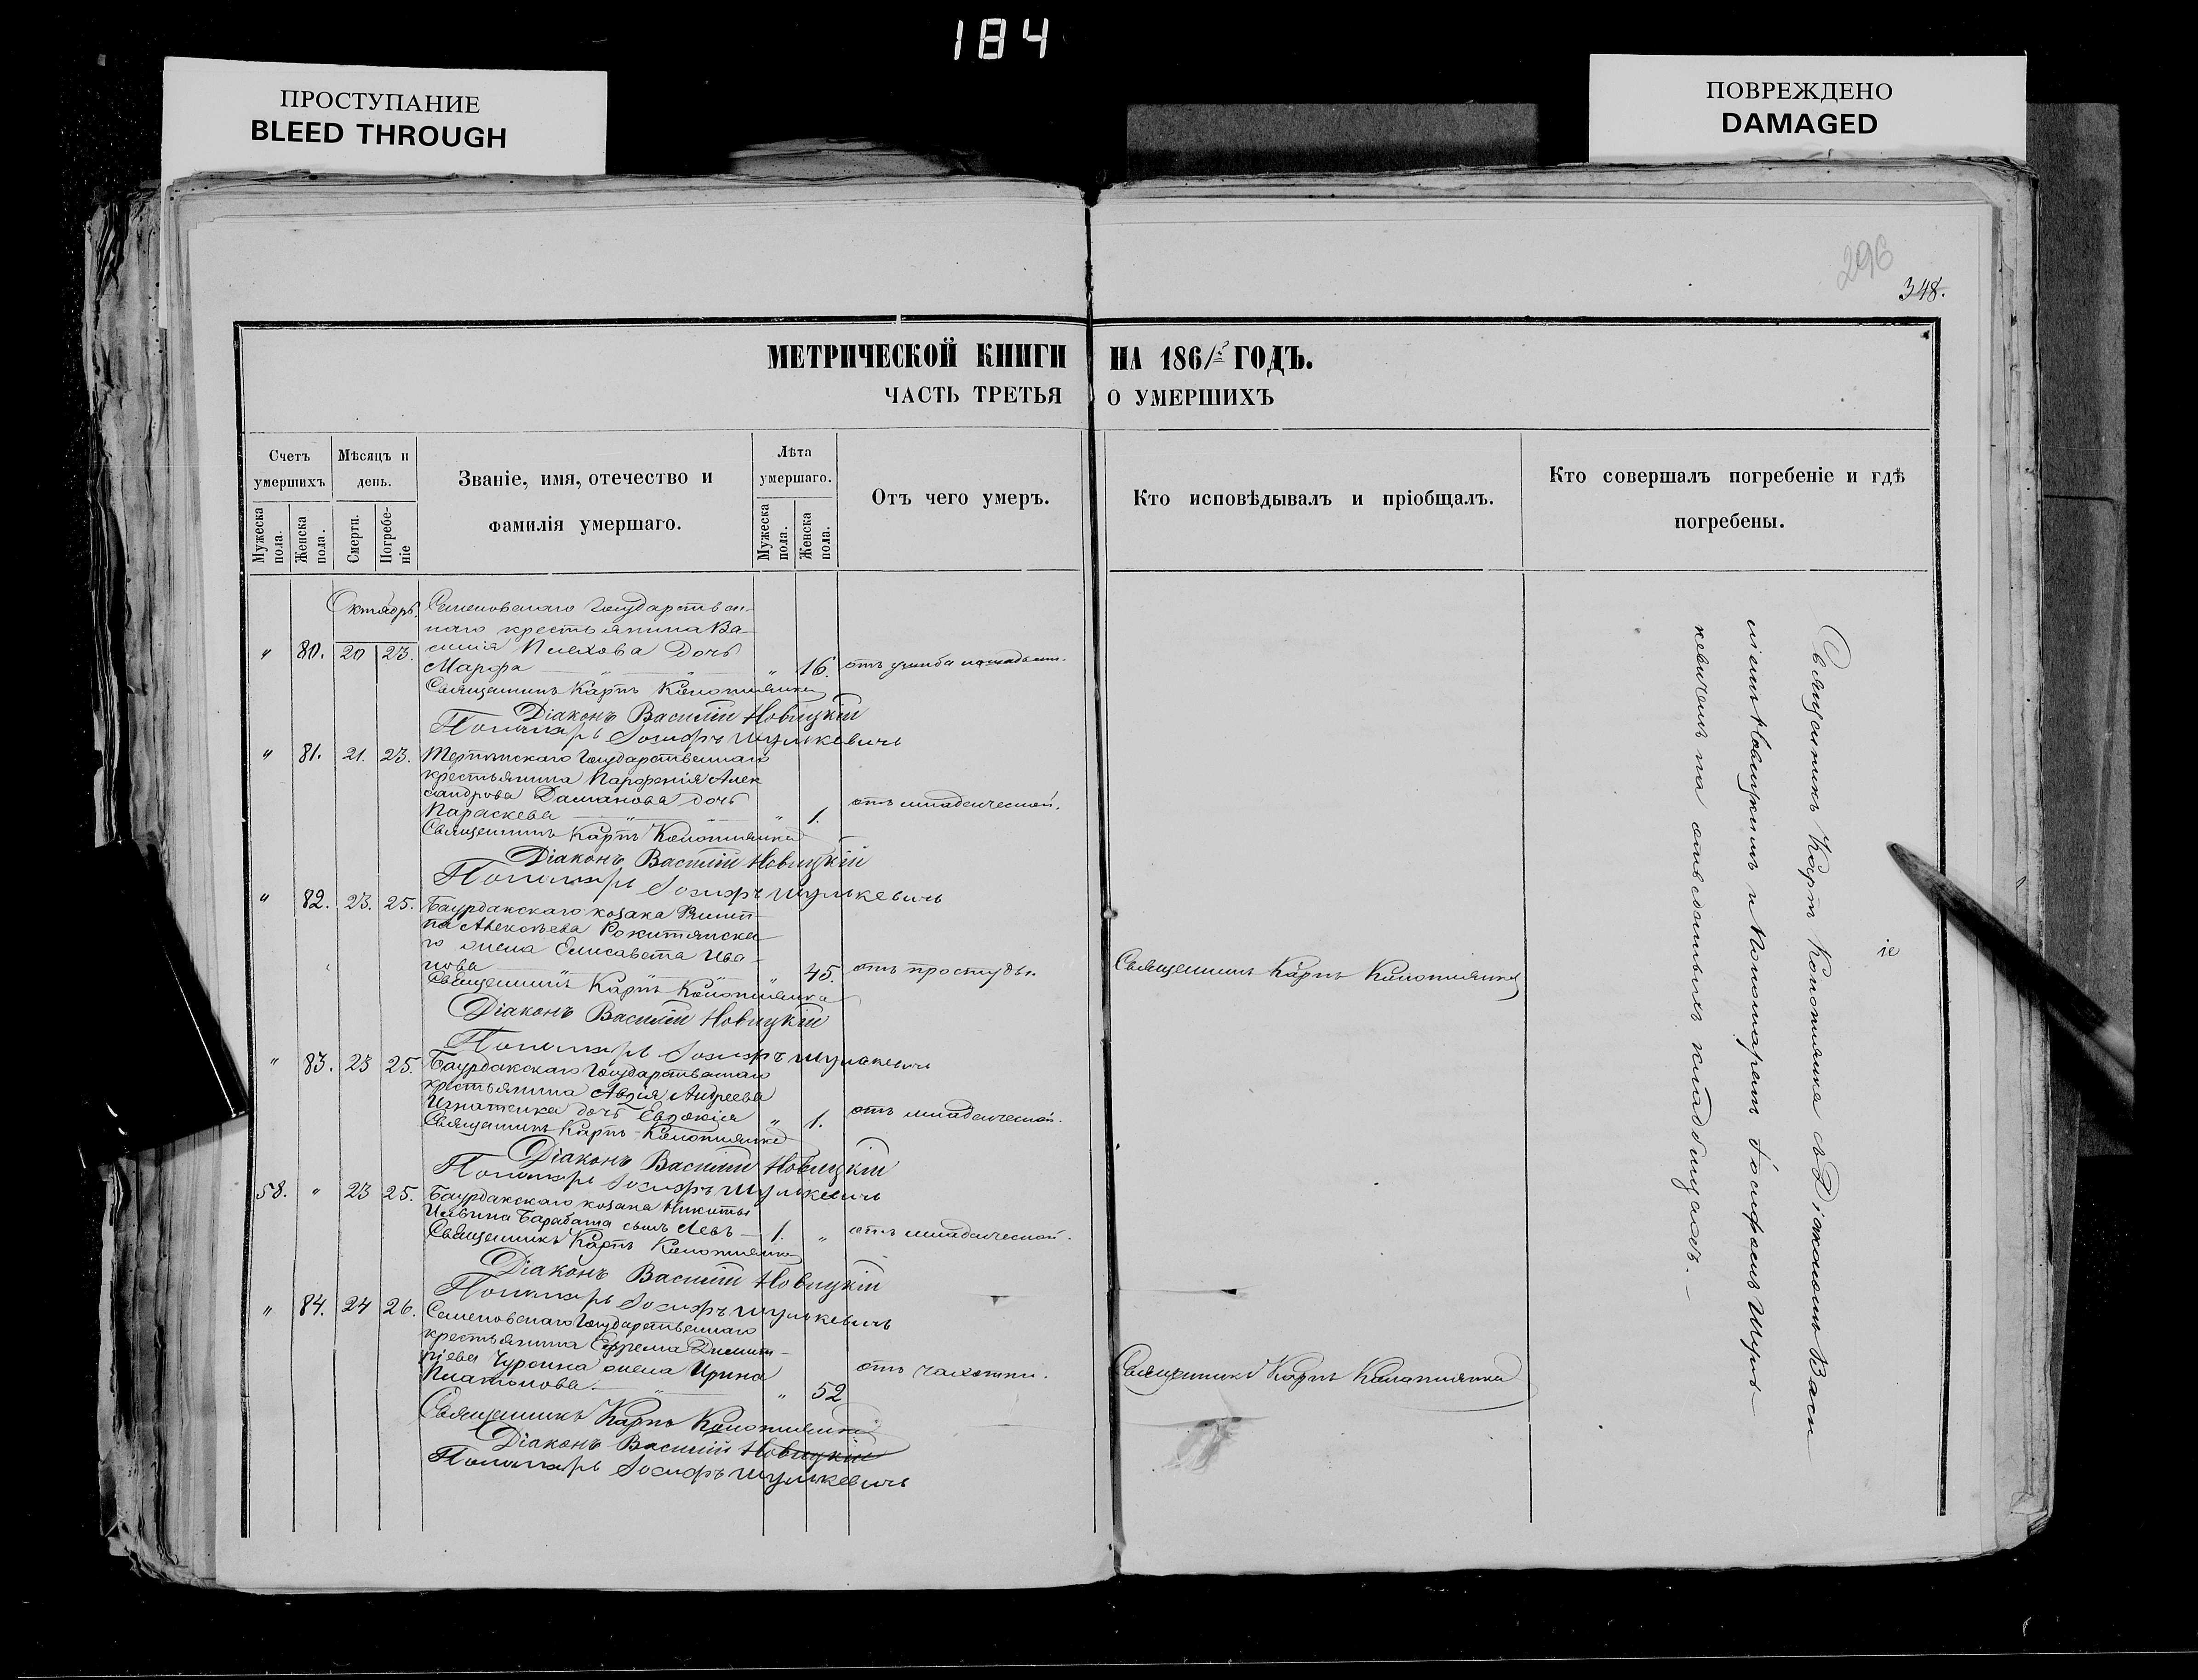 184
ПРОСТУПАНИЕ
BLEED THROUGH
ПОВРЕЖДЕНО
DAMAGED
296
348.
МЕТРИЧЕСКОЙ КНИГИ НА 186 ГОДЪ.
ЧАСТЬ ТРЕТЬЯ О УМЕРШИХЪ
Счетъ умершихъ
Мужеска пола.
Женска пола.
Мѣсяцъ и день.
Смерти.
Погребеніе
Званіе, имя, отечество и фамилія умершаго.
Лѣта умершаго.
Мужеска пола.
Женска пола.
Отъ чего умеръ.
Кто исповѣдывалъ и пріобщалъ.
Кто совершалъ погребеніе и гдѣ погребены.
Октябрь Семеновскаго государствен-
наго крестьянина Ва-
" 80. 20 23. силія дочь
Марфа " 16. отъ
Священникъ Карпъ
Діаконъ Василій Новицкій
Пономарь Іосифъ Шулькевичъ
" 81. 21. 23. государственнаго
крестьянина Парфенія Алек
сандрова Даманова дочь
Параскева " 1. отъ младенческой.
Священникъ Карпъ
Діаконъ Василій Новицкій
Пономарь Іосифъ Шулькевичъ
" 82. 23. 25. козака Филип
па Алексѣева
го жена Елисавета Ива-
нова " 45. отъ простуды. Священникъ Карпъ
Священникъ Карпъ
Діаконъ Василій Новицкій
Пономарь Іосифъ Шулькевичъ
" 83. 23 25. государственнаго
крестьянина Андреева
Игнатенка дочь Евдокія " 1. отъ младенческой.
Священникъ Карпъ
Діаконъ Василій Новицкій
Пономарь Іосифъ Шулькевичъ
58. " 23 25. козака Никиты
Ильина Барабаша сынъ Левъ 1. " отъ младенческой.
Священникъ Карпъ
Діаконъ Василій Новицкій
Пономарь Іосифъ Шулькевичъ
" 84. 24 26. Семеновскаго государственнаго
крестьянина Ефрема Димит-
ріева жена Ирина отъ чахотки. Священникъ Карпъ
Платонова " " 52
Священникъ Карпъ
Діаконъ Василій Новицкій
Пономарь Іосифъ Шулькевичъ
Священникъ Карпъ съ Діакономъ Васи
ліемъ Новицкимъ и Пономаремъ Іосифомъ Шуль-
кевичемъ на кладбищахъ.